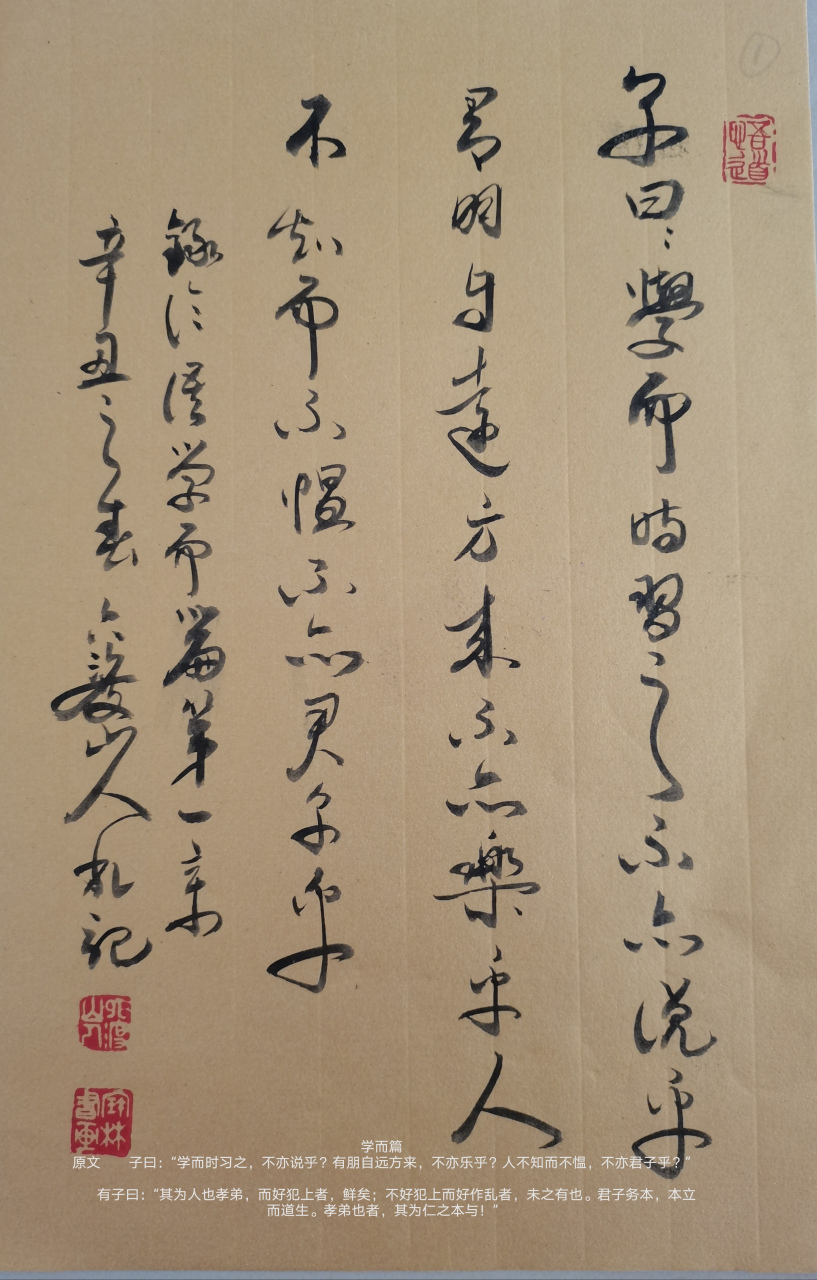 子曰：學而時習之不亦说乎
有朋自遠方来不亦樂乎人
不知而不愠不亦君子乎
錄论语学而篇第一章
辛丑之春六渡山人札記
①
吾道
六渡山人
書畫
学而篇
原文 子曰：“学而时习之，不亦说乎？有朋自远方来，不亦乐乎？人不知而不愠，不亦君子乎？”
有子曰：“其为人也孝弟，而好犯上者，鲜矣；不好犯上而好作乱者，未之有也。君子务本，本立
而道生。孝弟也者，其为仁之本与！”